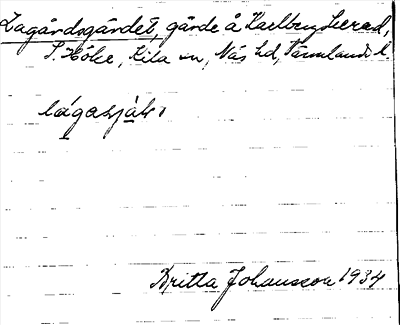 Lagårdsgärdet, gärde å Karlberg Sverad,
S. Höke, Kila sn, Näs hd, Värmlands l.
lágasjálv
Britta Johansson 1934